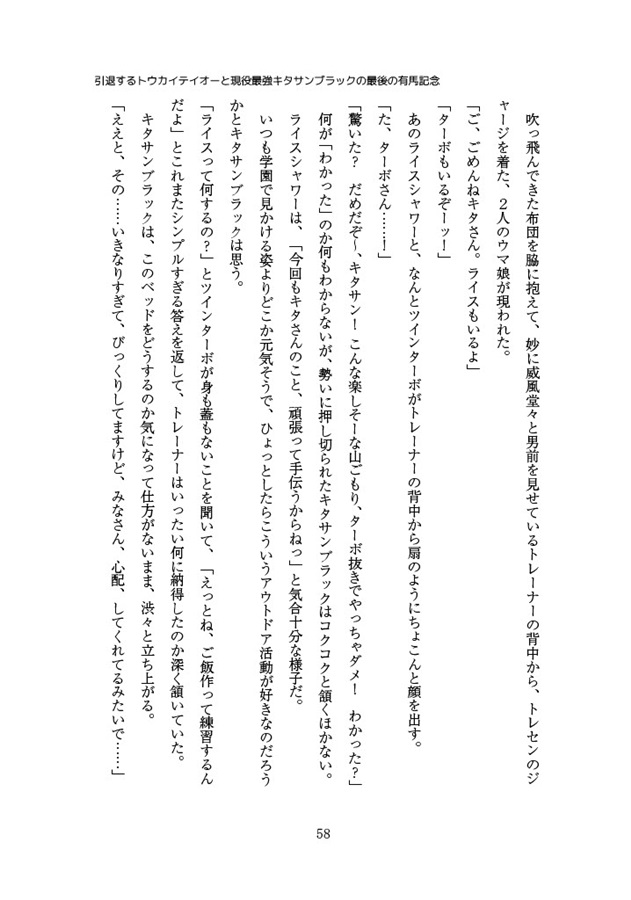 引退するトウカイテイオーと現役最強キタサンブラックの最後の有馬記念
吹っ飛んできた布団を脇に抱えて、妙に威風堂々と男前を見せているトレーナーの背中から、トレセンのジ
ャージを着た、２人のウマ娘が現われた。
「ご、ごめんねキタさん。ライスもいるよ」
「ターボもいるぞーッ！」
あのライスシャワーと、なんとツインターボがトレーナーの背中から扇のようにちょこんと顔を出す。
「た、ターボさん……！」
「驚いた？　だめだぞ～、キタサン！　こんな楽しそーな山ごもり、ターボ抜きでやっちゃダメ！　わかった？」
何が「わかった」のか何もわからないが、勢いに押し切られたキタサンブラックはコクコクと頷くほかない。
ライスシャワーは、「今回もキタさんのこと、頑張って手伝うからねっ」と気合十分な様子だ。
いつも学園で見かける姿よりどこか元気そうで、ひょっとしたらこういうアウトドア活動が好きなのだろう
かとキタサンブラックは思う。
「ライスって何するの？」とツインターボが身も蓋もないことを聞いて、「えっとね、ご飯作って練習するん
だよ」とこれまたシンプルすぎる答えを返して、トレーナーはいったい何に納得したのか深く頷いていた。
キタサンブラックは、このベッドをどうするのか気になって仕方がないまま、渋々と立ち上がる。
「ええと、その……いきなりすぎて、びっくりしてますけど、みなさん、心配、してくれてるみたいで……」
58